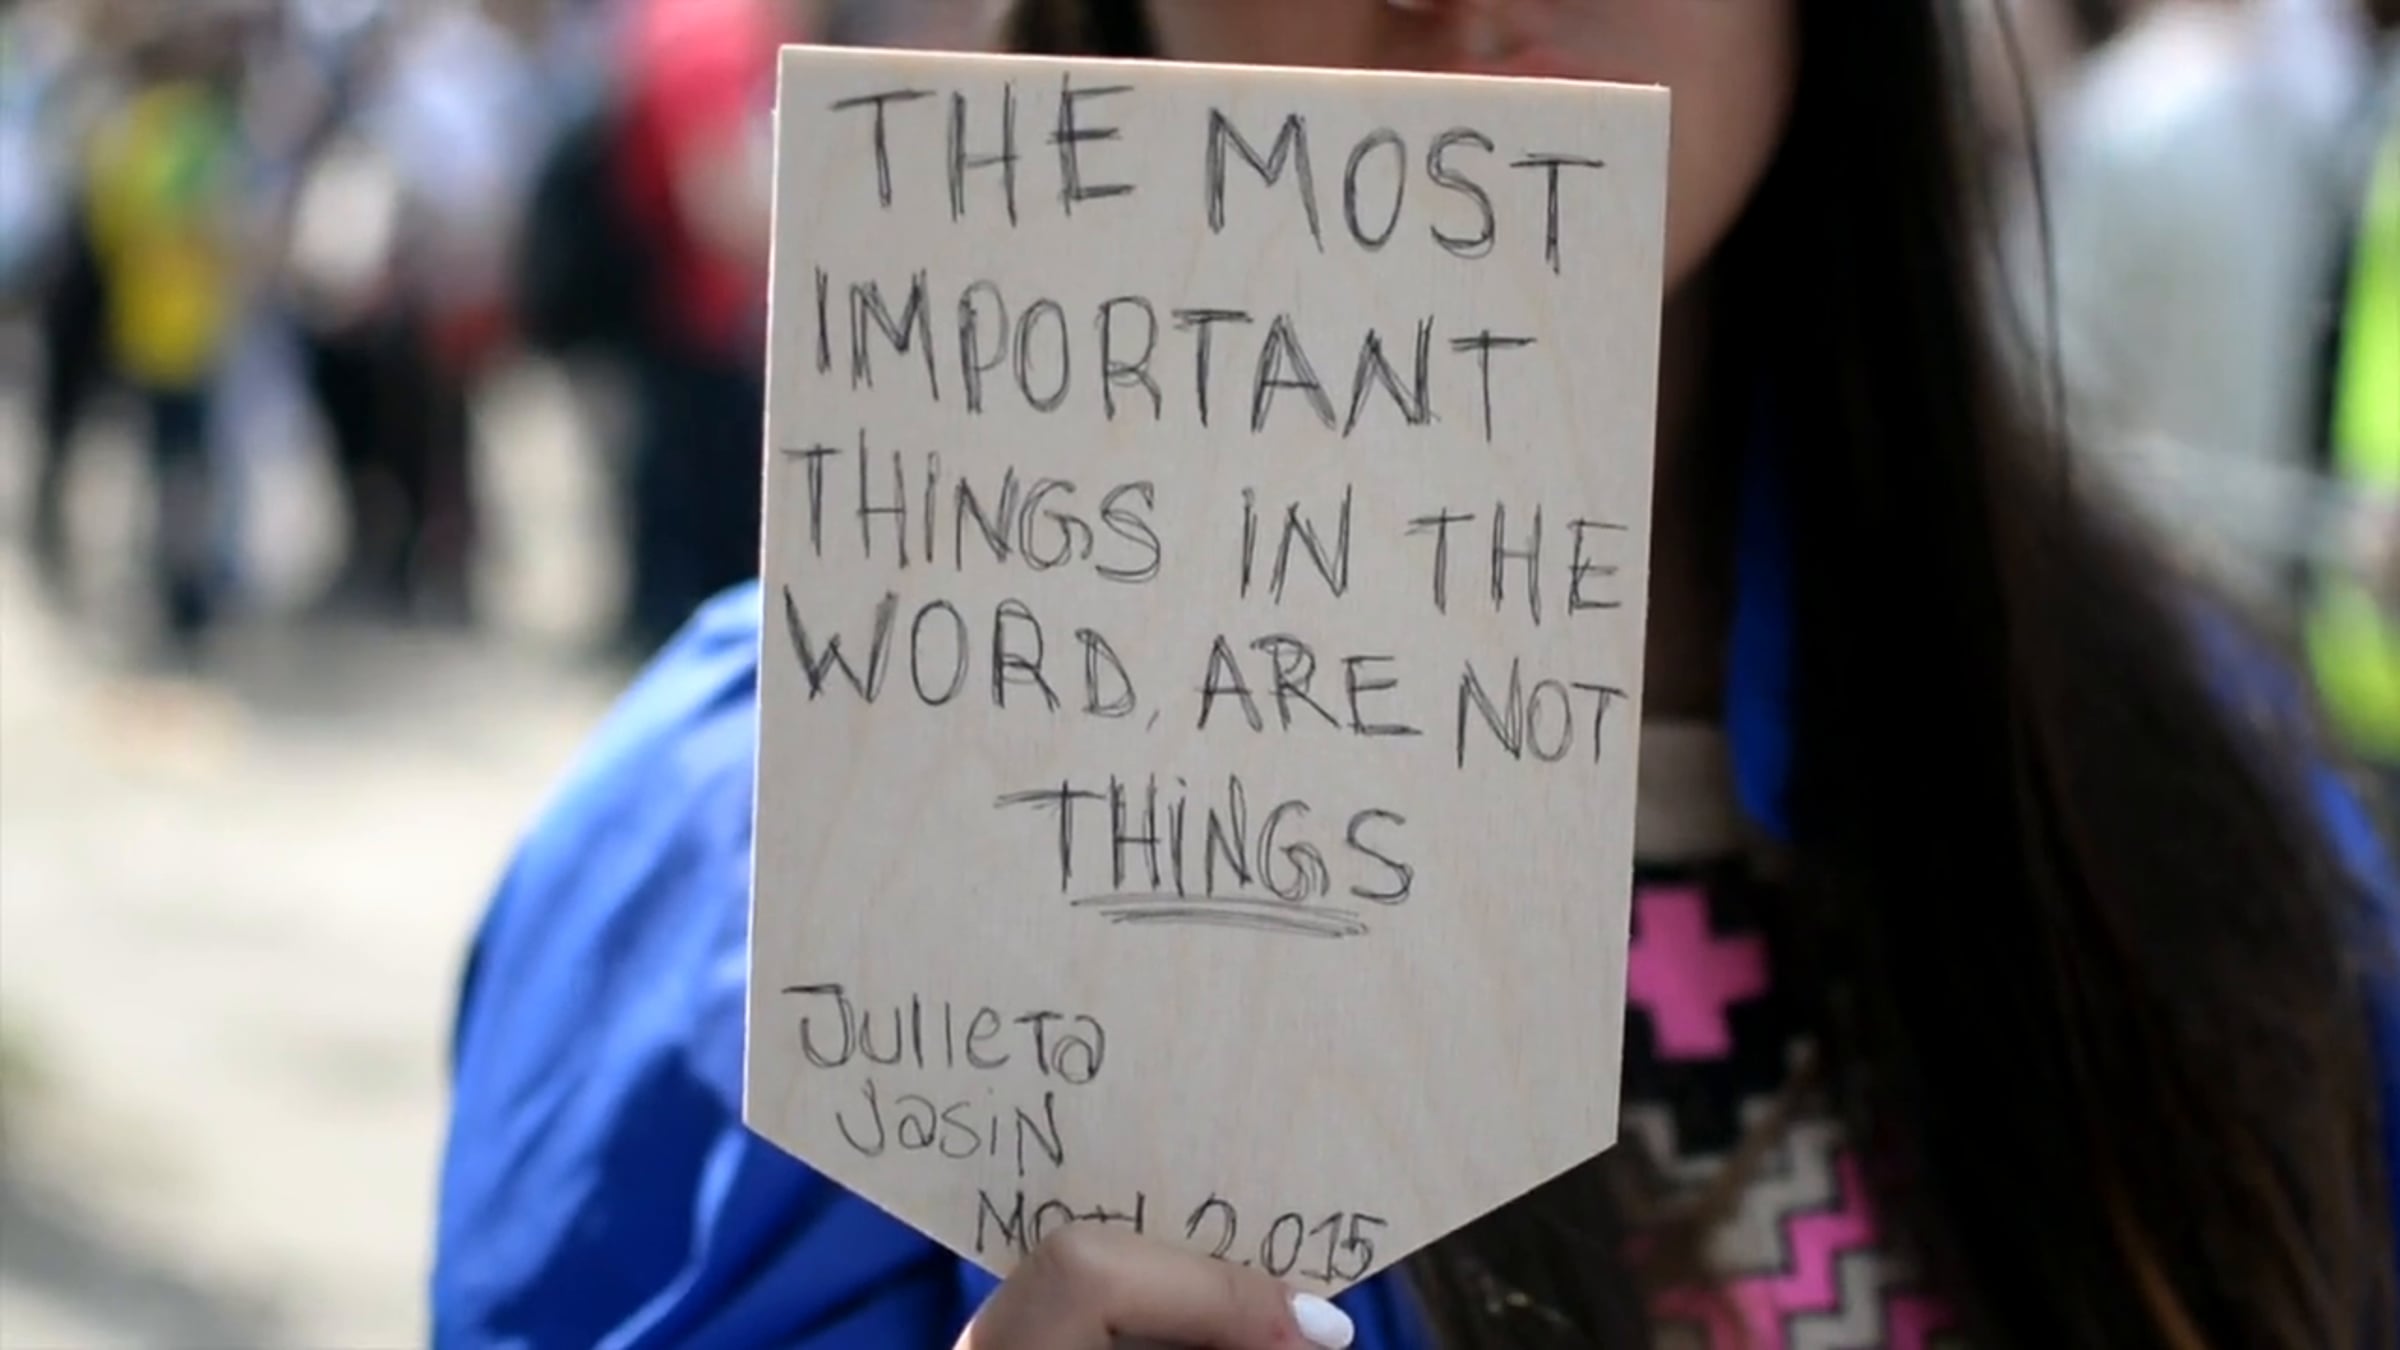 THE MOST
IMPORTANT
THINGS IN THE
WORD, ARE NOT
THINGS
Julieta
Jasin
2.015